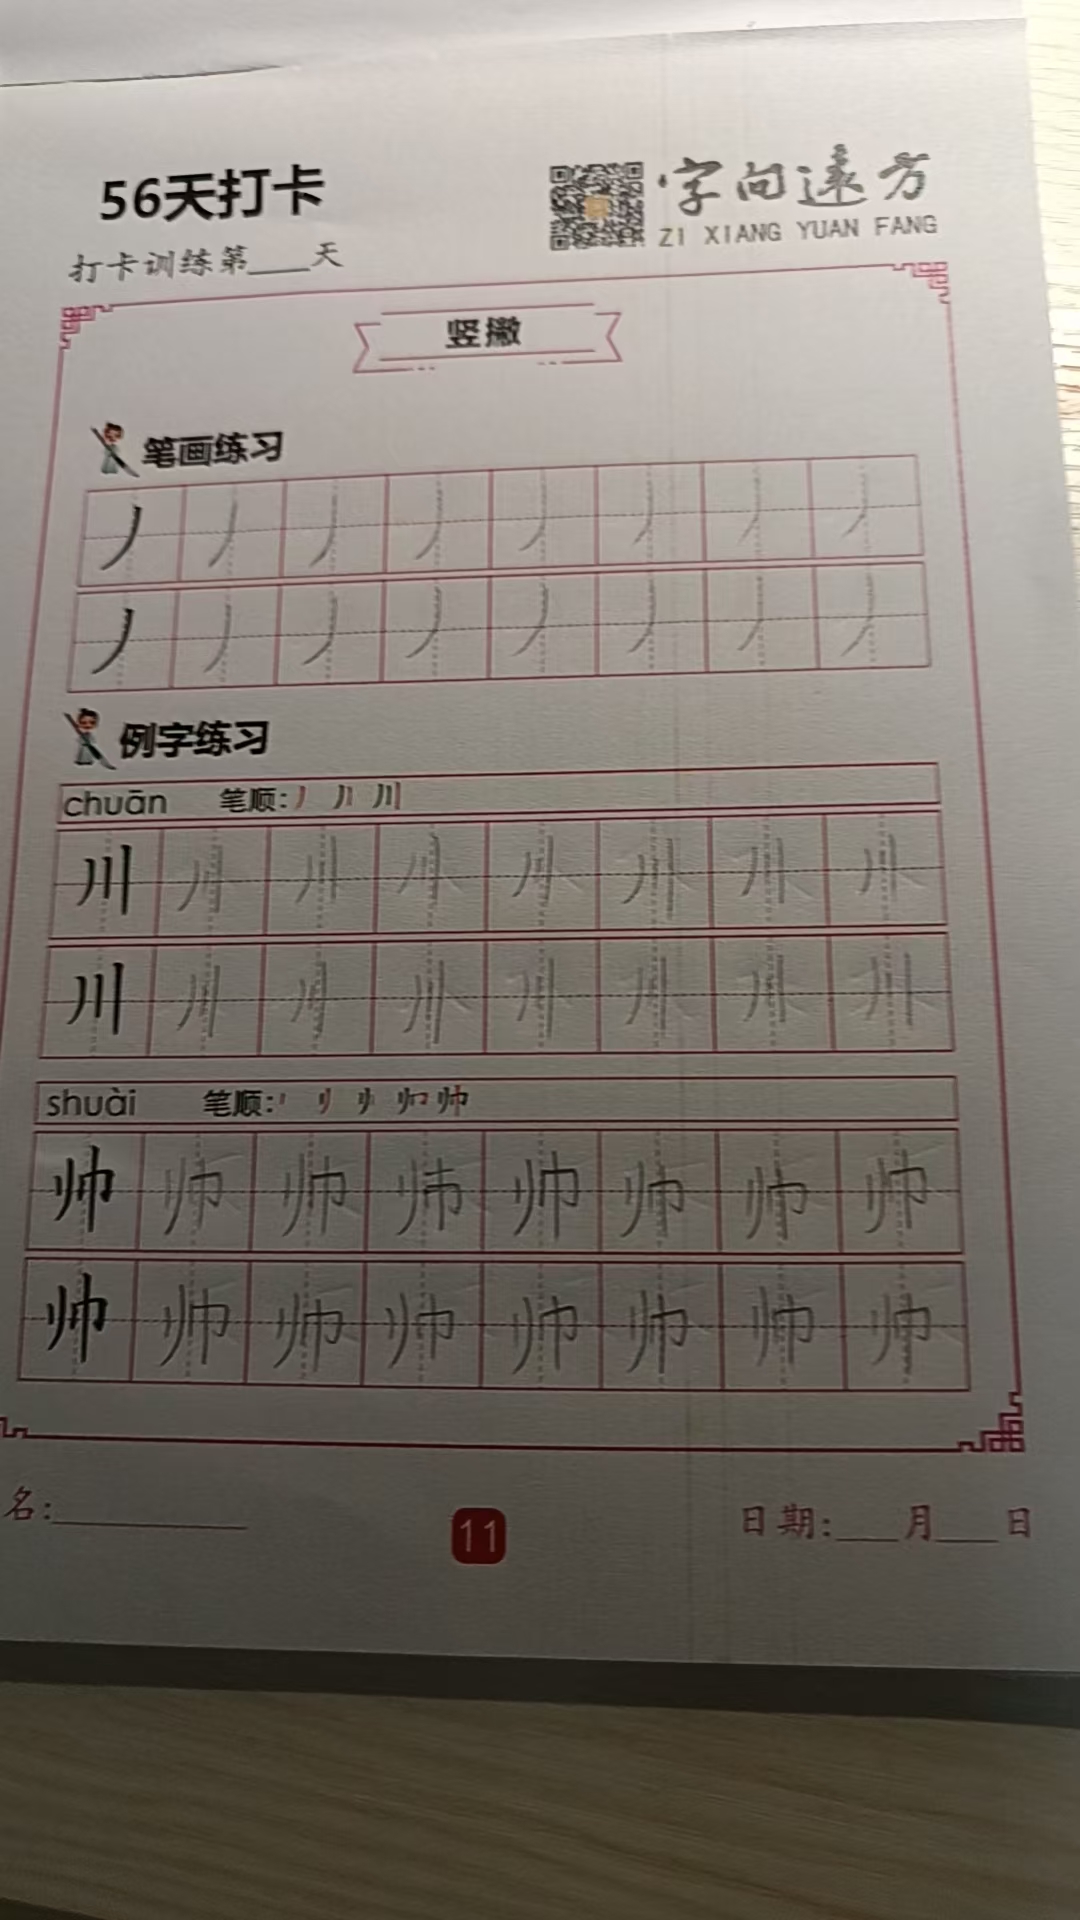 56天打卡
字向远方
ZI XIANG YUAN FANG
打卡训练第____天
竖撇
笔画练习
丿丿丿丿丿丿丿丿
丿丿丿丿丿丿丿丿
例字练习
chuān 笔顺:
川川川川川川川川
川川川川川川川川
shuài 笔顺:
帅帅帅帅帅帅帅帅
帅帅帅帅帅帅帅帅
名:____________
11
日期:____月____日